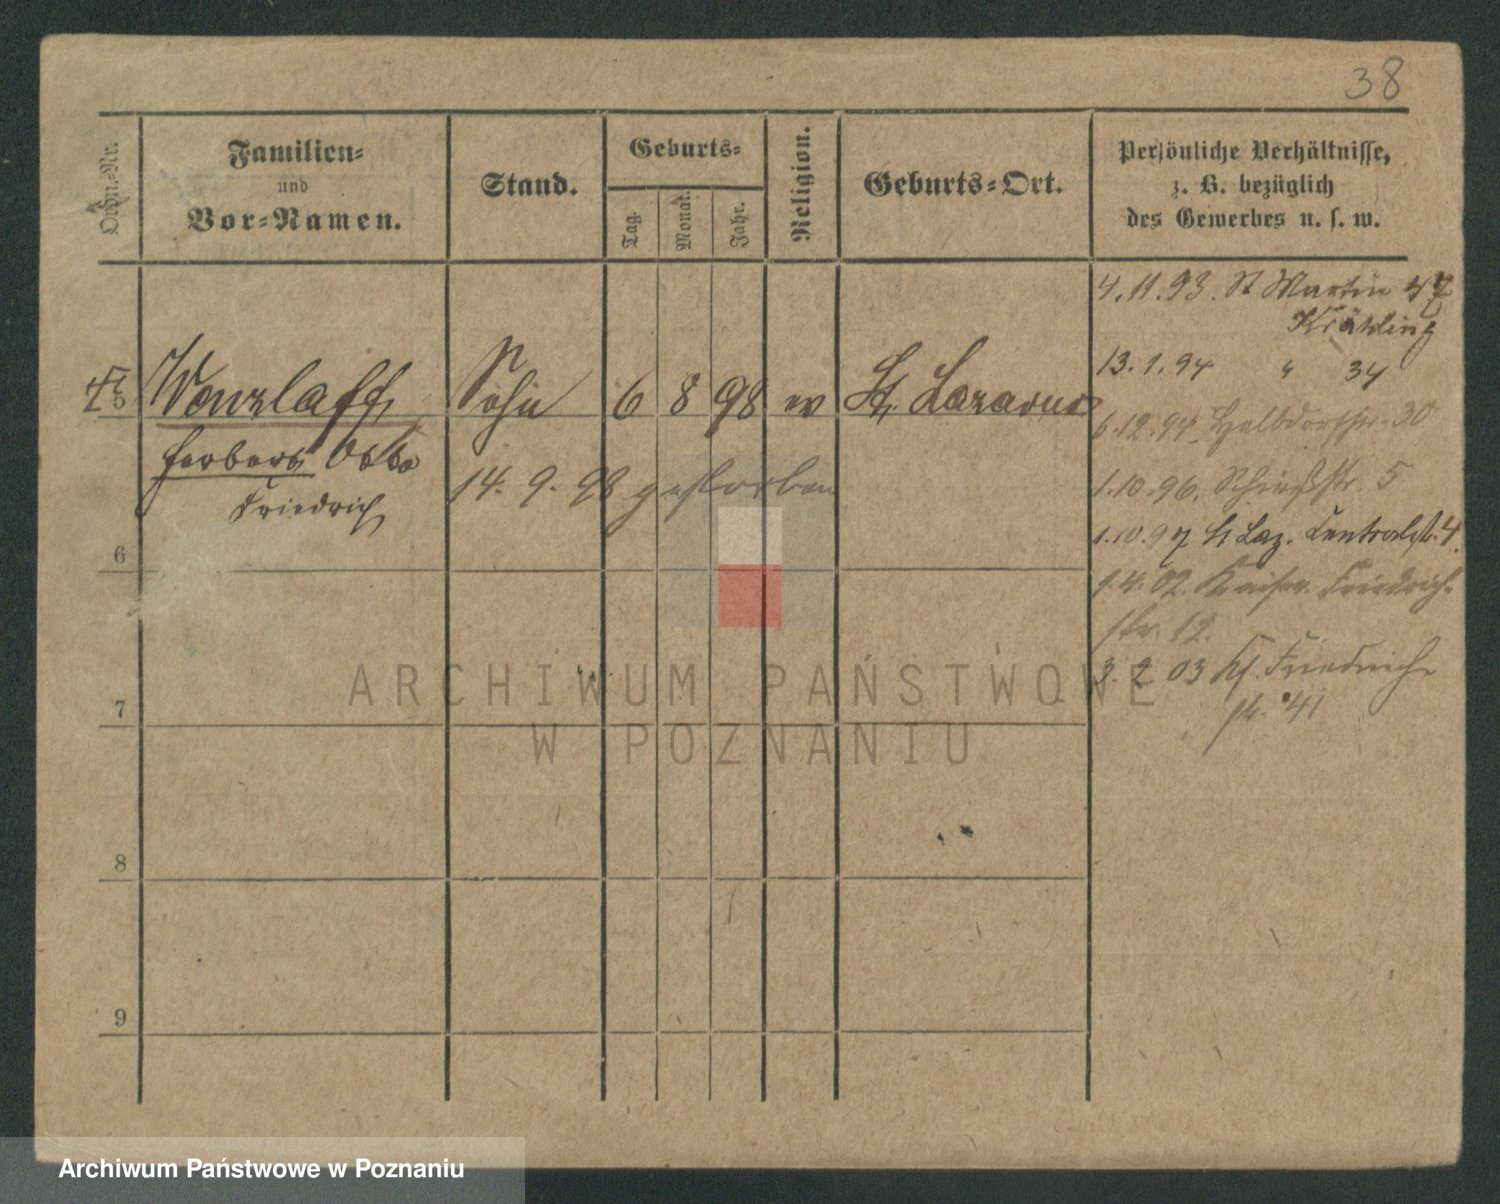 38
Ordn.-Nr.
Familien-
und
Vor-Namen.
Stand.
Geburts-
Tag.
Monat.
Jahr.
Religion.
Geburts-Ort.
Persönliche Verhältnisse,
z. B. bezüglich
des Gewerbes u. s. w.
5 Wenzlaff, Sohn 6 8 98 ev St. Lazarus
Herbert Otto
Friedrich
14. 9. 98 gestorben
6
7
8
9
4.11.93. St Martin 47
Krähling
13.1.94 " 34
6.12.94. Halbdorfstr. 30
1.10.96. Schießstr. 5
1.10.97 St Laz. Centralstr. 4.
1.4.02. Kaiser. Friedrich-
str. 12.
3. 2 03 Friedrich
str. 41
ARCHIWUM PAŃSTWOWE
W POZNANIU
Archiwum Państwowe w Poznaniu